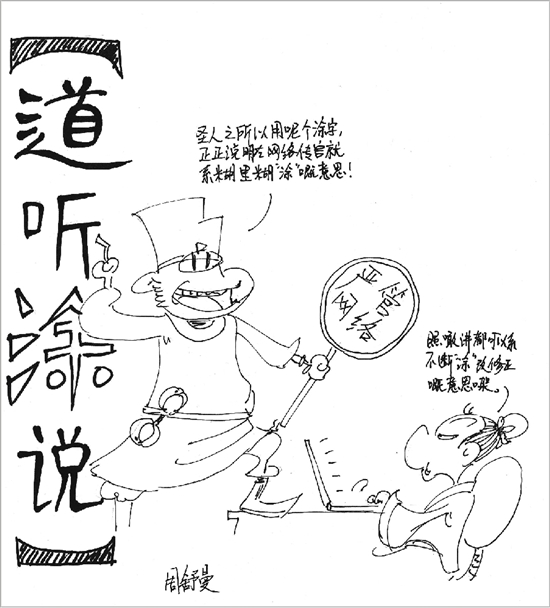 【道听涂说】
圣人之所以用呢个涂字，
正正说明左网络传官就
系糊里糊“涂”嘅意思！
严管
网络
照噉讲都可以系
不断“涂”改修正
嘅意思㗎。
周舒曼